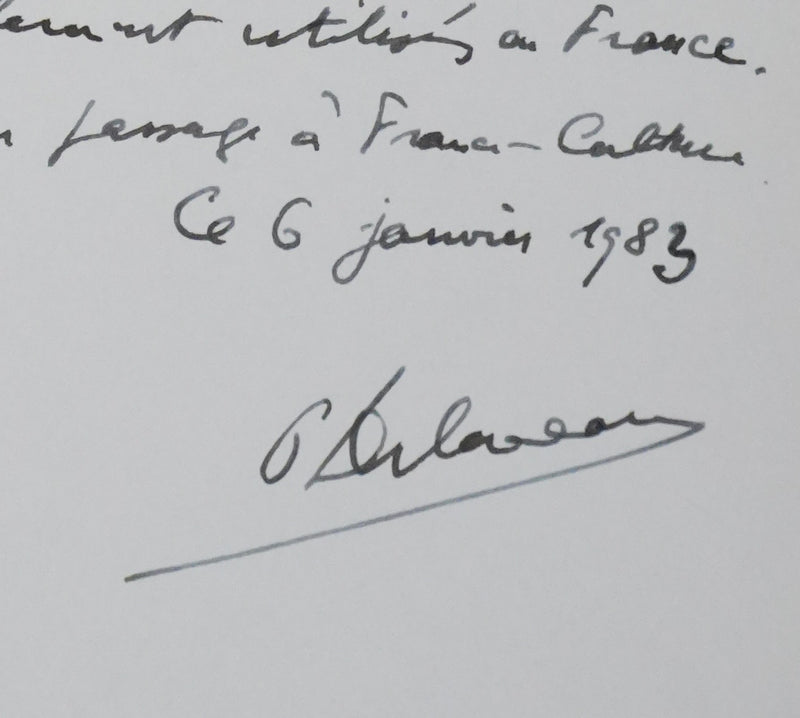 utilisés en France.
passage à France-Culture
Ce 6 janvier 1983
P Delaveau